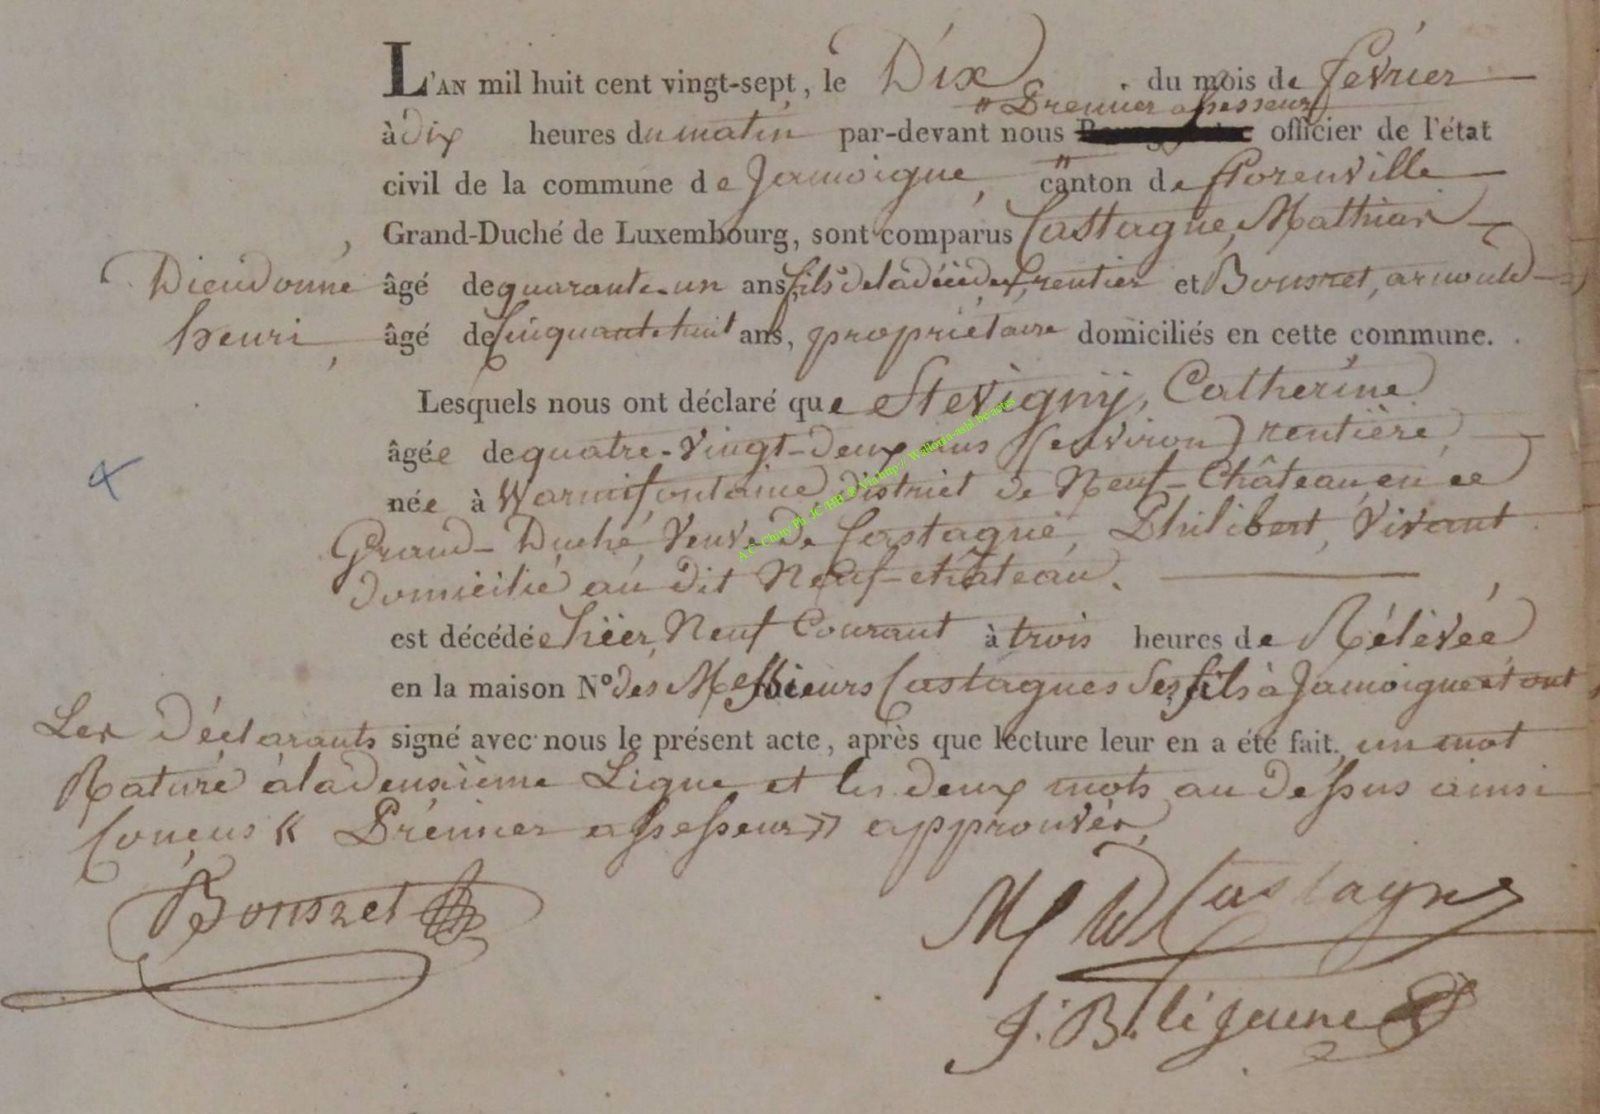 L'AN mil huit cent vingt-sept, le Dix du mois de février
" Premier assesseur
à dix heures du matin par-devant nous officier de l'état
civil de la commune de Jamoigne, canton de florenville
Grand-Duché de Luxembourg, sont comparus Castagne, Mathias
Dieudonné âgé de quarante-un ans, fils de la décédée, rentier et Bousret, arnould
henri, âgé de Cinquante huit ans, propriétaire domiciliés en cette commune.
Lesquels nous ont déclaré que Stevignÿ, Catherine
âgée de quatre-vingt-deux ans (environ) rentière
née à Warmifontaine, district de Neuf-Château en ce
Grand-Duché, Veuve de Castagne, Philibert, Vivant
domicilié au dit Neuf-château.
est décédée hier, Neuf Courant à trois heures de Rélévée
en la maison N° des Messieurs Castagnes Ses fils à Jamoigne et ont
Les Déclarants signé avec nous le présent acte, après que lecture leur en a été fait, un mot
Raturé à la deuxième Ligne et les deux mots au dessus ainsi
Conçus « Prémier assesseur » approuvés
Bousret
Castagne
J. B. lejeune
A.C. Chiny Ph. JC HH @ Via http:// Wallonia-asbl.be/actes